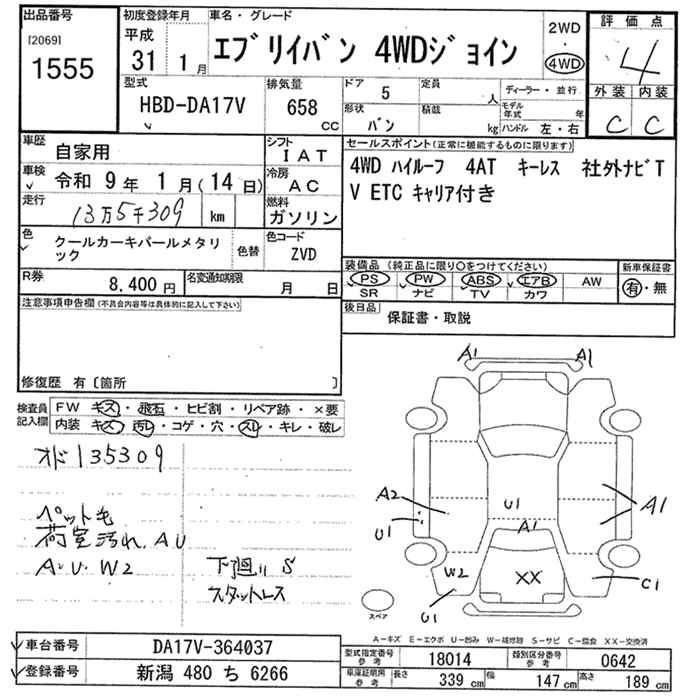 出品番号
[2069]
1555
初度登録年月
平成
31 1月
車名・グレード
エブリイバン 4WDジョイン
2WD
・
4WD
評価点
4
外装 内装
C C
型式
HBD-DA17V
排気量
658
CC
ドア 5
定員
人
形状
バン
積載
kg
ディーラー・並行
モデル年式 年
ハンドル 左・右
車歴
自家用
シフト
IAT
車検
令和 9年 1月(14日)
冷房
AC
走行
13万5千309 km
燃料
ガソリン
色
クールカーキパールメタリ
ック
色替
色コード
ZVD
R券
8,400円
名変通知期限
月 日
セールスポイント(正常に機能するものに限ります)
4WD ハイルーフ 4AT キーレス 社外ナビT
V ETC キャリア付き
装備品(純正品に限り○をつけてください)
PS PW ABS エアB AW
SR ナビ TV カワ
新車保証書
有・無
後日品
保証書・取説
注意事項申告欄(不具合内容等は具体的に記入して下さい)
修復歴 有〔箇所 〕
検査員
記入欄
FW キズ・飛石・ヒビ割・リペア跡・×要
内装 キズ・汚レ・コゲ・穴・スレ・キレ・破レ
オド135309
ペット毛
荷室汚れ、AU
A・U・W2
下廻り S
スタットレス
A1 A1
A2
U1
U1
A1
A1
W2
XX
C1
U1
スペア
A−キズ E−エクボ U−凹み W−補修跡 S−サビ C−腐食 XX−交換済
車台番号
DA17V-364037
登録番号
新潟 480 ち 6266
型式指定番号
参考
18014
類別区分番号
参考
0642
車庫証明用
参考
長さ 339 cm 幅 147 cm 高さ 189 cm